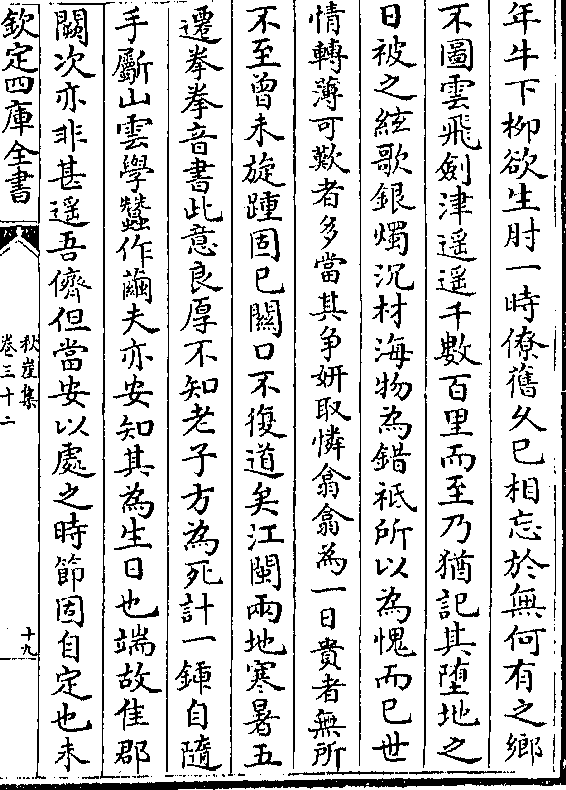 年牛下柳欲生肘一時僚舊久已相忘於無何有之鄉
不圖雲飛劍津遥遥千數百里而至乃猶記其墮地之
日被之絃歌銀燭沉材海物為錯祗所以為愧而已世
情轉薄可歎者多當其争妍取憐翕翕為一日貴者無所
不至曾未旋踵固已闗口不復道矣江閩兩地寒暑五
遷拳拳音書此意良厚不知老子方為死計一鍤自隨
手斸山雲學蠶作繭夫亦安知其為生日也端故佳郡
闕次亦非甚遥吾儕但當安以處之時節固自定也未
欽定四庫全書
秋崖集
卷三十二
十九